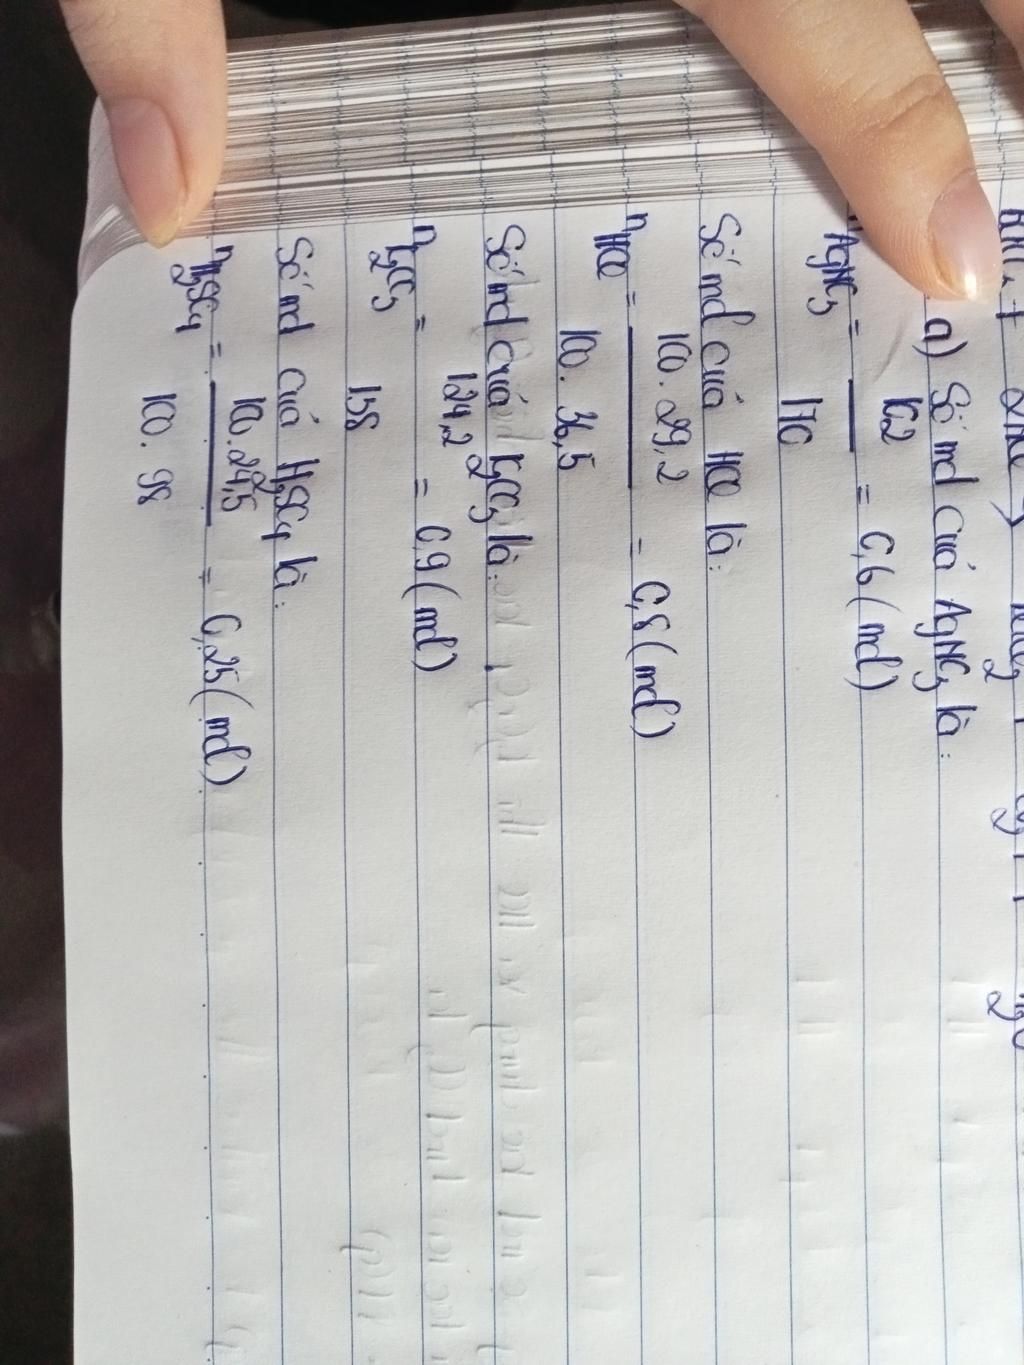 a) Số mol của AgNO3 là:
nAgNO3 = 102 / 170 = 0,6 (mol)
Số mol của HCl là:
nHCl = 100. 29,2 / 100. 36,5 = 0,8 (mol)
Số mol của K2CO3 là:
nK2CO3 = 124,2 / 138 = 0,9 (mol)
Số mol của H2SO4 là:
nH2SO4 = 100. 24,5 / 100. 98 = 0,25 (mol)